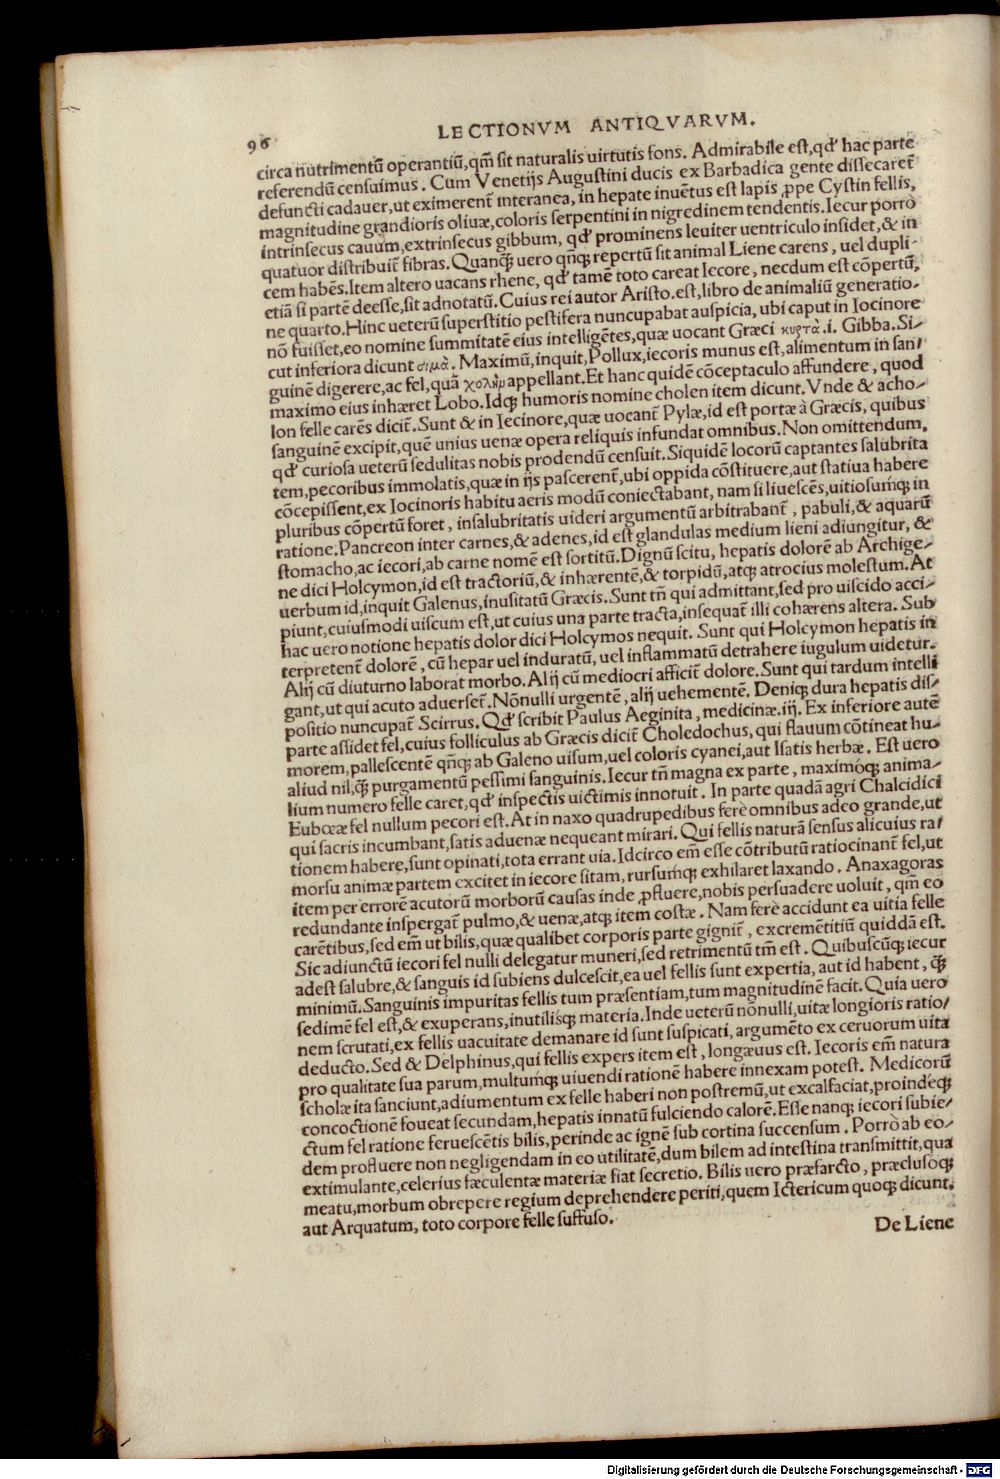 96 LECTIONVM ANTIQVARVM.
circa nutrimentū operantiū,qm̄ sit naturalis uirtutis fons. Admirabile est,qd' hac parte
referendū censuimus. Cum Venetijs Augustini ducis ex Barbadica gente dissecaret̄
defuncti cadauer,ut eximerent̄ interanea, in hepate inuētus est lapis ꝓpe Cystin fellis,
magnitudine grandioris oliuæ,coloris serpentini in nigredinem tendentis.Iecur porrò
intrinsecus cauum,extrinsecus gibbum, qd' prominens leuiter uentriculo insidet,& in
quatuor distribuit̄ fibras.Quanꝗ̄ uero qn̄qꝫ repertū sit animal Liene carens, uel dupli-
cem habēs.Item altero uacans rhene, qd' tamē toto careat Iecore, necdum est cōpertū,
etiā si partē deesse,sit adnotatū.Cuius rei autor Aristo.est,libro de animaliū generatio-
ne quarto.Hinc ueterū superstitio pestifera nuncupabat auspicia, ubi caput in Iocinore
nō fuisset,eo nomine summitatē eius intelligētes,quæ uocant Græci κυρτὰ.i. Gibba.Si-
cut inferiora dicunt σιμὰ. Maximū,inquit,Pollux,iecoris munus est,alimentum in san-
guinē digerere,ac fel,quā χολὴν appellant.Et hanc quidē cōceptaculo affundere, quod
maximo eius inhæret Lobo.Idqꝫ humoris nomine cholen item dicunt.Vnde & acho-
lon felle carēs dicit̄.Sunt & in Iecinore,quæ uocant̄ Pylæ,id est portæ à Græcis, quibus
sanguinē excipit,quē unius uenæ opera reliquis infundat omnibus.Non omittendum,
qd' curiosa ueterū sedulitas nobis prodendū censuit.Siquidē locorū captantes salubrita
tem,pecoribus immolatis,quæ in ijs pascerent̄,ubi oppida cōstituere,aut statiua habere
cōcepissent,ex Iocinoris habitu aeris modū coniectabant, nam si liuescēs,uitiosumqꝫ in
pluribus cōpertū foret, insalubritatis uideri argumentū arbitrabant̄, pabuli,& aquarū
ratione.Pancreon inter carnes,& adenes,id est glandulas medium lieni adiungitur, &
stomacho,ac iecori,ab carne nomē est sortitū.Dignū scitu, hepatis dolorē ab Archige-
ne dici Holcymon,id est tractoriū,& inhærentē,& torpidū,atqꝫ atrocius molestum.At
uerbum id,inquit Galenus,inusitatū Græcis.Sunt tn̄ qui admittant,sed pro uiscido acci-
piunt,cuiusmodi uiscum est,ut cuius una parte tracta,insequat̄ illi cohærens altera. Sub
hac uero notione hepatis dolor dici Holcymos nequit. Sunt qui Holcymon hepatis in
terpretent̄ dolorē, cū hepar uel induratū, uel inflammatū detrahere iugulum uidetur.
Alij cū diuturno laborat morbo.Alij cū mediocri afficit̄ dolore.Sunt qui tardum intelli
gant,ut qui acuto aduerset̄. Nōnulli urgentē, alij uehementē. Deniqꝫ dura hepatis dis-
positio nuncupat̄ Scirrus. Qd' scribit Paulus Aeginita, medicinæ.iij. Ex inferiore autē
parte assidet fel,cuius folliculus ab Græcis dicit̄ Choledochus, qui flauum cōtineat hu-
morem,pallescentē qn̄qꝫ ab Galeno uisum,uel coloris cyanei,aut Isatis herbæ. Est uero
aliud nil,ꝗ̄ purgamentū pessimi sanguinis.Iecur tn̄ magna ex parte, maximóqꝫ anima-
lium numero felle caret,qd' inspectis uictimis innotuit. In parte quadā agri Chalcidici
Eubœæ fel nullum pecori est.At in naxo quadrupedibus ferè omnibus adeo grande,ut
qui sacris incumbant,satis aduenæ nequeant mirari. Qui fellis naturā sensus alicuius ra-
tionem habere,sunt opinati,tota errant uia.Idcirco em̄ esse cōtributū ratiocinant̄ fel,ut
morsu animæ partem excitet in iecore sitam,rursumqꝫ exhilaret laxando. Anaxagoras
item per errorē acutorū morborū causas inde ꝓfluere,nobis persuadere uoluit, qm̄ eo
redundante inspergat̄ pulmo,& uenæ,atqꝫ item costæ. Nam ferè accidunt ea uitia felle
carētibus,sed em̄ ut bilis,quæ qualibet corporis parte gignit̄, excremētitiū quiddā est.
Sic adiunctū iecori fel nulli delegatur muneri,sed retrimentū tm̄ est. Quibuscūqꝫ iecur
adest salubre,& sanguis id subiens dulcescit,ea uel fellis sunt expertia, aut id habent, ꝗ̄
minimū.Sanguinis impuritas fellis tum præsentiam,tum magnitudinē facit. Quia uero
sedimē fel est,& exuperans,inutilisqꝫ materia.Inde ueterū nōnulli,uitæ longioris ratio-
nem scrutati,ex fellis uacuitate demanare id sunt suspicati, argumēto ex ceruorum uita
deducto.Sed & Delphinus,qui fellis expers item est, longæuus est. Iecoris em̄ natura
pro qualitate sua parum,multumqꝫ uiuendi rationē habere innexam potest. Medicorū
scholæ ita sanciunt,adiumentum ex felle haberi non postremū,ut excalfaciat,proindeqꝫ
concoctionē foueat secundam,hepatis innatū fulciendo calorē.Esse nanqꝫ iecori subie-
ctum fel ratione feruescētis bilis,perinde ac ignē sub cortina succensum. Porrò ab eo-
dem profluere non negligendam in eo utilitatē,dum bilem ad intestina transmittit,qua
extimulante,celerius fæculentæ materiæ fiat secretio. Bilis uero præfarcto, præclusóqꝫ
meatu,morbum obrepere regium deprehendere periti,quem Ictericum quoqꝫ dicunt,
aut Arquatum, toto corpore felle suffuso.
De Liene
Digitalisierung gefördert durch die Deutsche Forschungsgemeinschaft - DFG